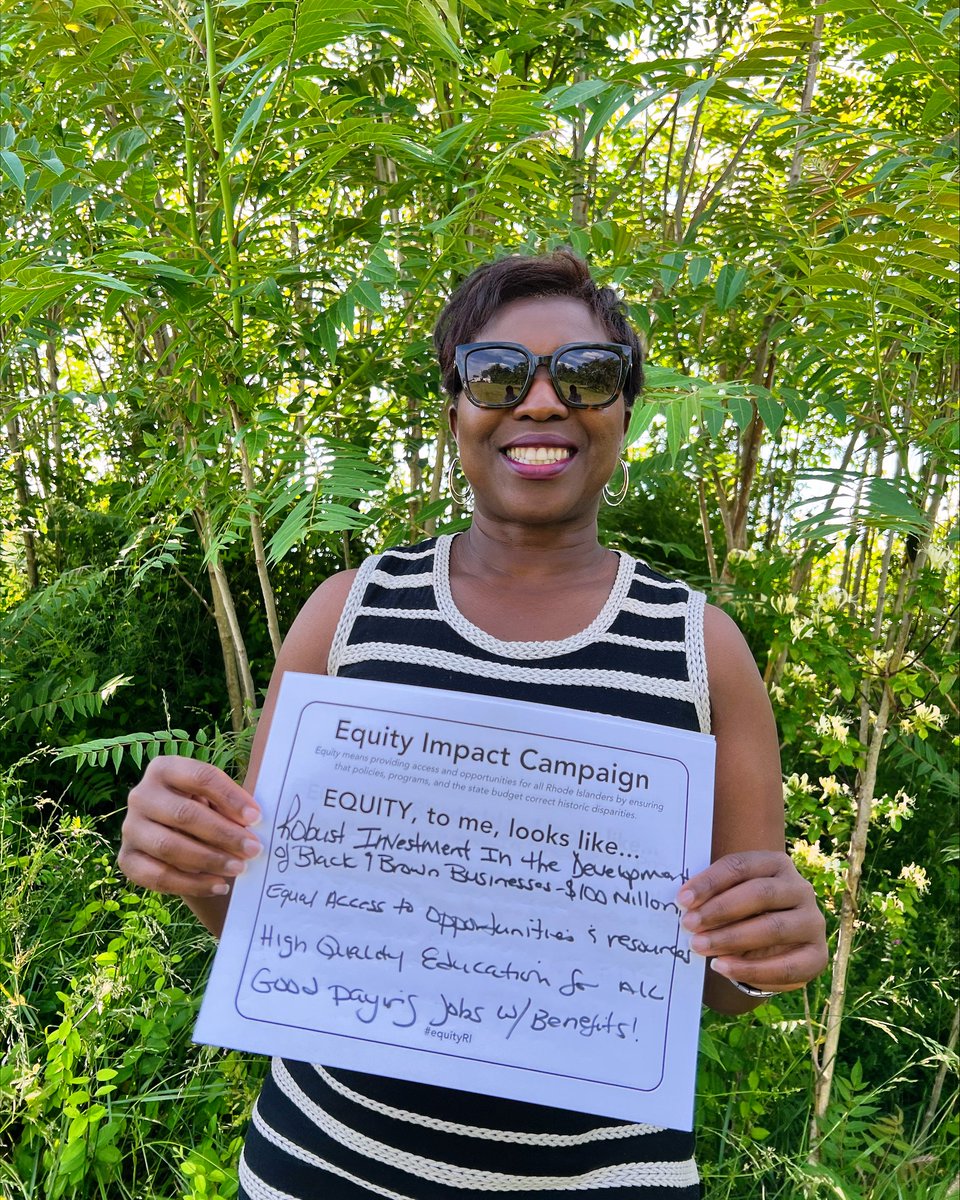 Equity Impact Campaign
Equity means providing access and opportunities for all Rhode Islanders by ensuring
that policies, programs, and the state budget correct historic disparities.
EQUITY, to me, looks like...
Robust Investment In the Development
of Black & Brown Businesses - $100 Million
Equal Access to opportunities & resources
High Quality Education for All
Good paying Jobs w/ Benefits!
#equityRI